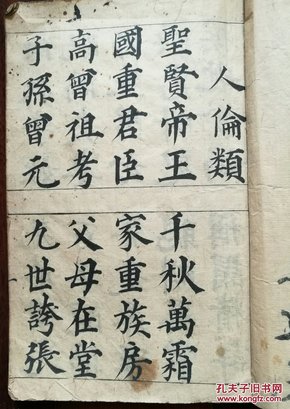 人倫類
聖賢帝王
千秋萬霜
國重君臣
家重族房
高曾祖考
父母在堂
子孫曾元
九世誇張
孔夫子旧书网